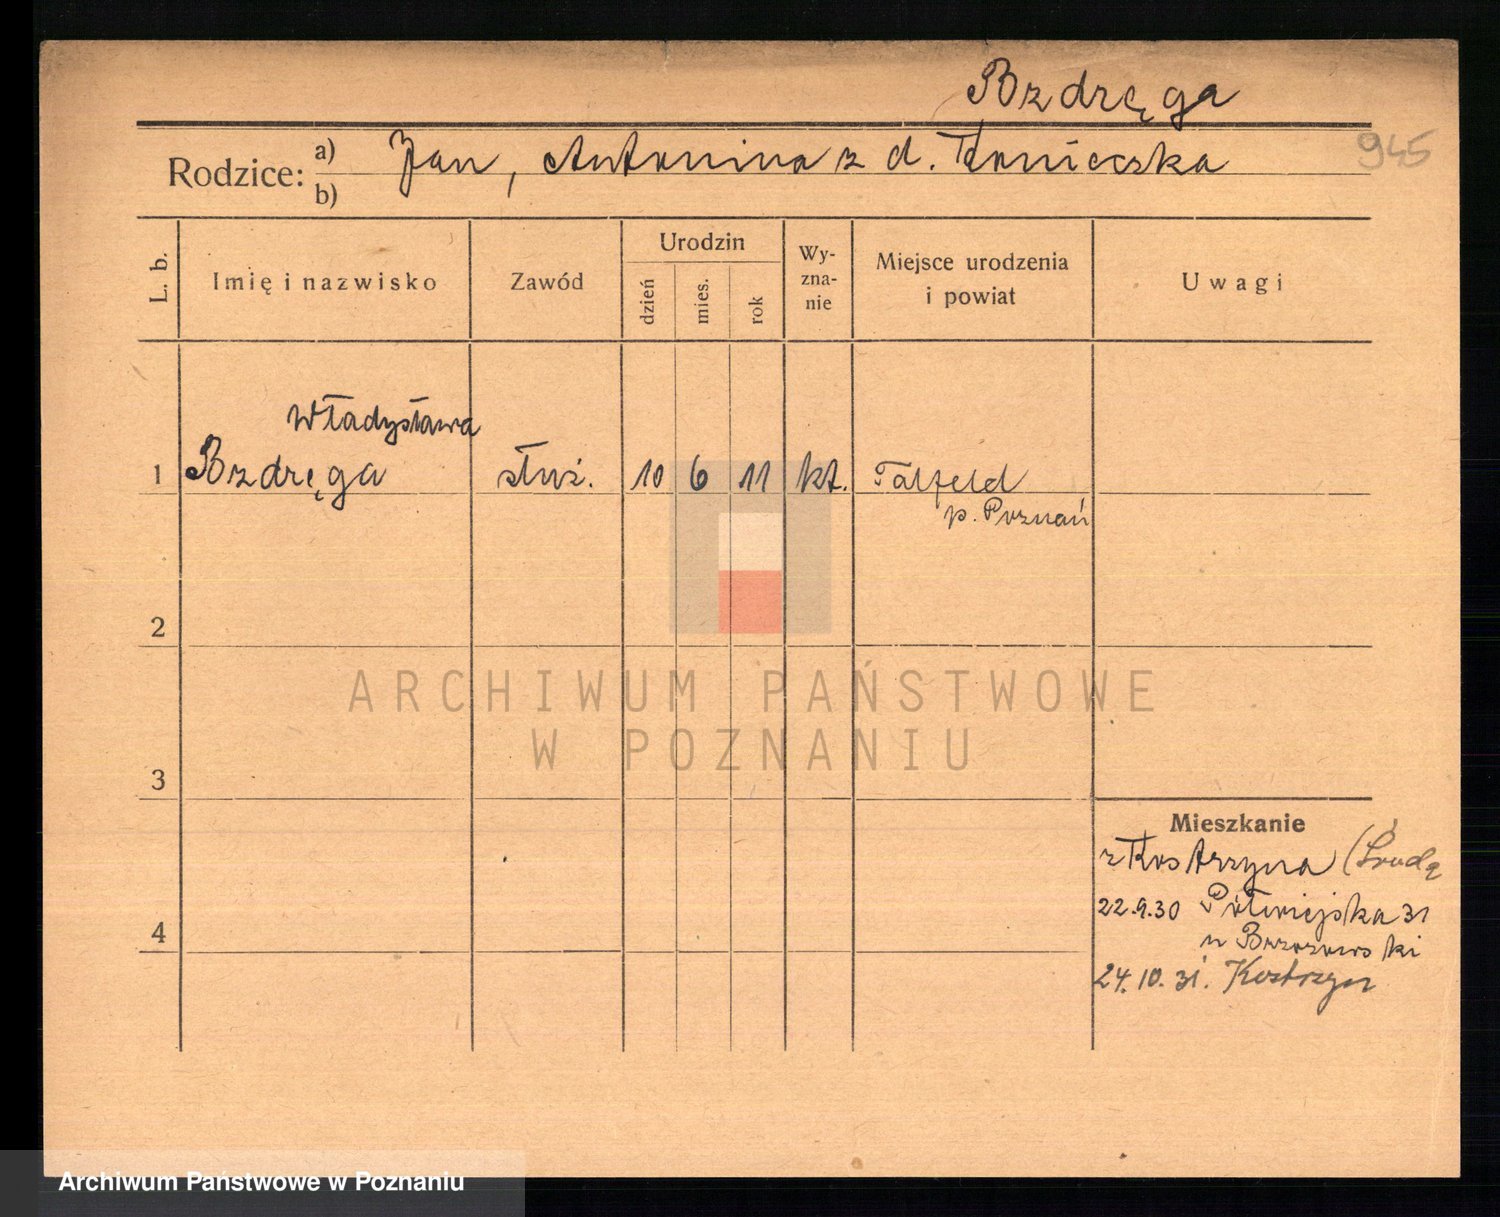 Bzdręga
945
Rodzice: a) b) Jan, Antonina z d. Konieczka
L. b.
Imię i nazwisko
Zawód
Urodzin
dzień
mies.
rok
Wy-
zna-
nie
Miejsce urodzenia
i powiat
Uwagi
Władysława
1 Bzdręga służ. 10 6 11 kt. Talfeld
p. Poznań
2
3
4
Mieszkanie
z Kostrzyna (Środa
22.9.30 Półwiejska 31
u Brzozowski
24.10.31. Kostrzyn
ARCHIWUM PAŃSTWOWE
W POZNANIU
Archiwum Państwowe w Poznaniu